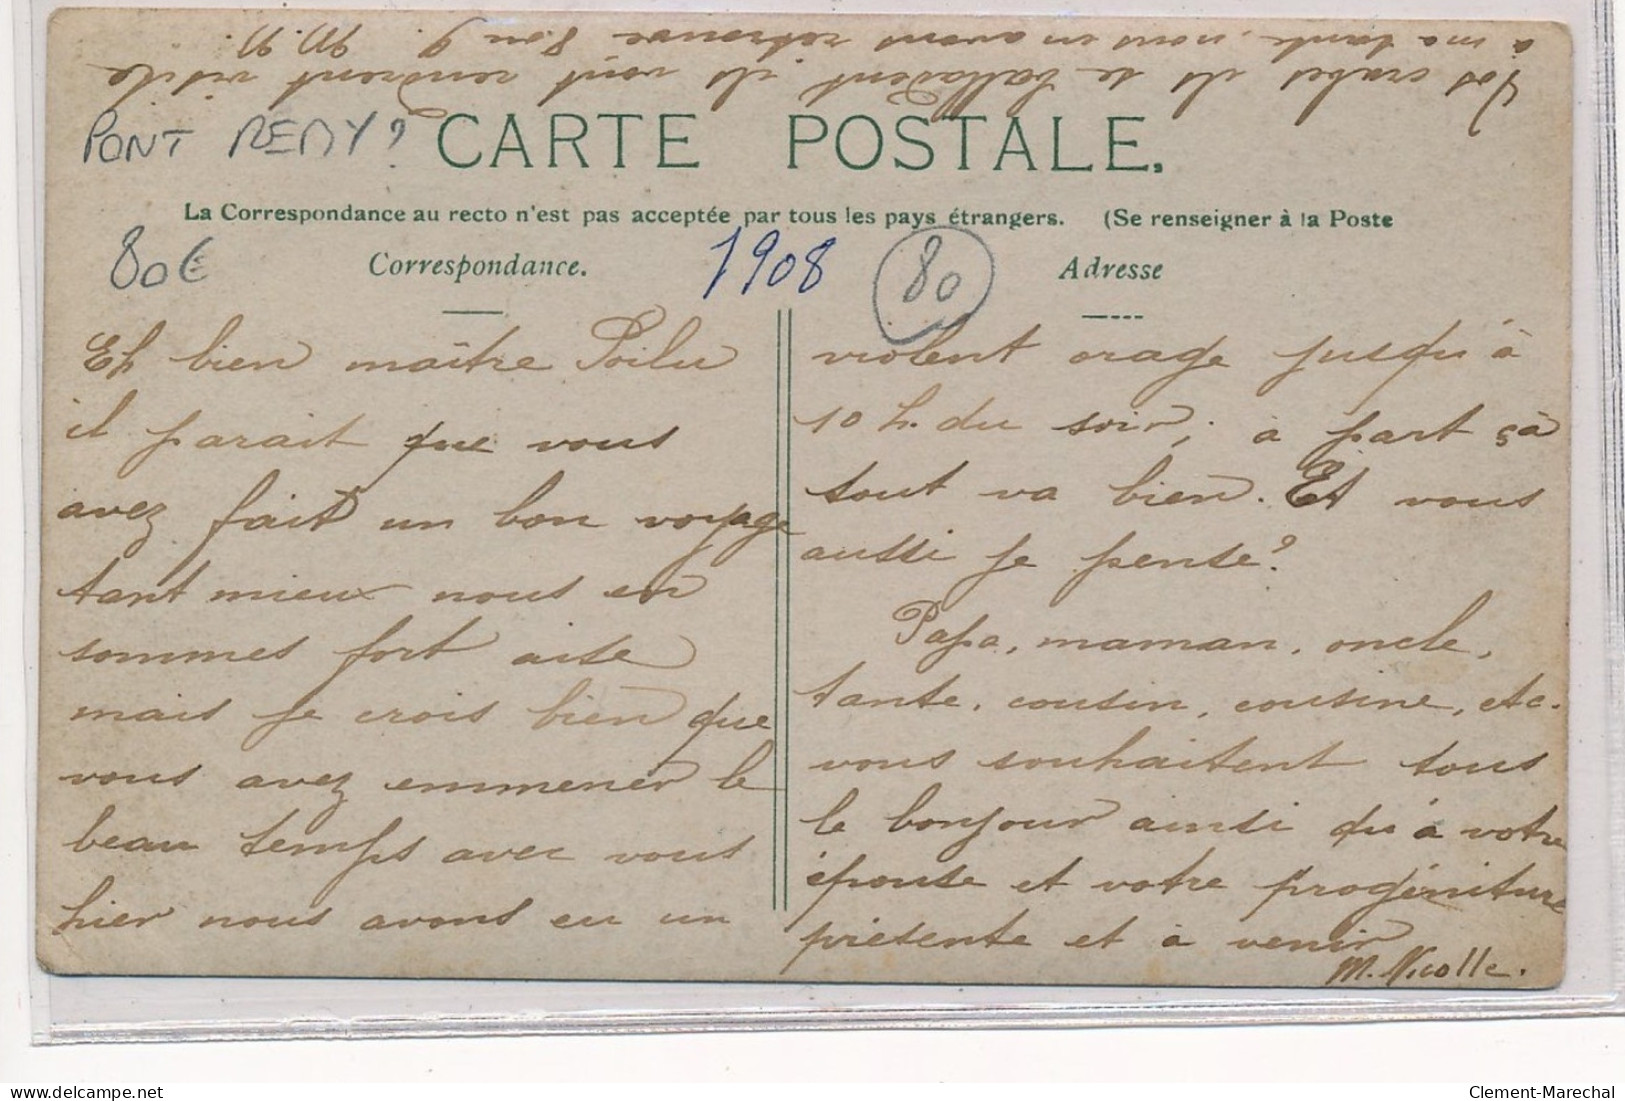 Vos crabes ils se balladent, ils vont rendrent visite
à ma tante, nous en avons retrouvé 8 ou 9. M. N.
PONT REMY?
CARTE POSTALE.
La Correspondance au recto n'est pas acceptée par tous les pays étrangers. (Se renseigner à la Poste
80€
Correspondance.
1908
80
Adresse
Eh bien maître Poilu
il parait que vous
avez fait un bon voyage
tant mieux nous en
sommes fort aise
mais je crois bien que
vous avez emmener le
beau temps avec vous
hier nous avons eu un
violent orage jusqu'à
10 h. du soir; à part ça
tout va bien. Et vous
aussi je pense?
Papa, maman, oncle,
tante, cousin, cousine, etc.
vous souhaitent tous
le bonjour ainsi qu'à votre
épouse et votre progéniture
présente et à venir
M. Nicolle.
Clement-Marechal